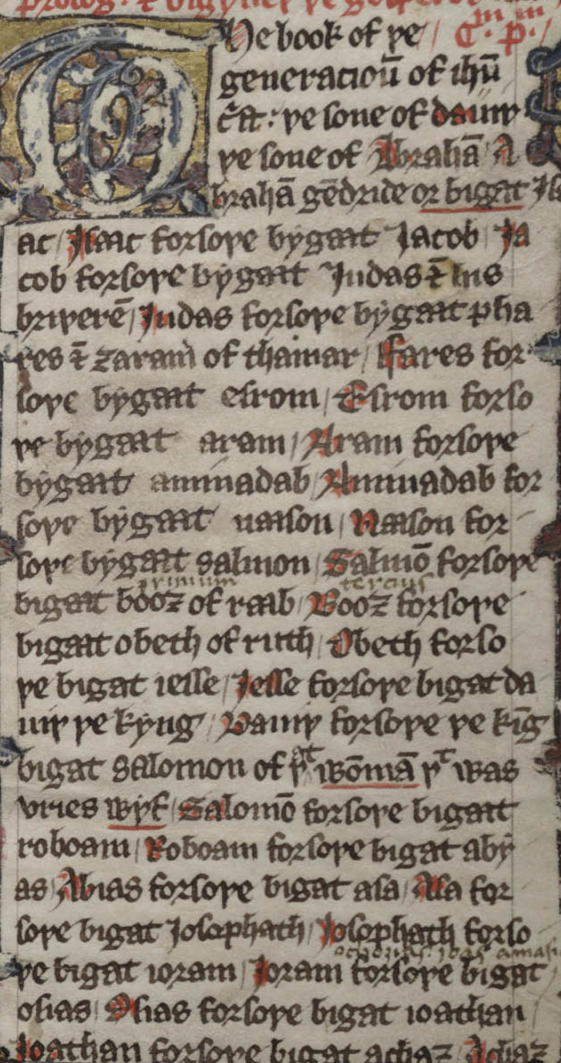 He book of þe
C. p.
generacioū of ihū
c̄st: þe sone of dauiþ
þe sone of Abrahā A
brahā gēdride or bigat Isa
ac / Isaac forsoþe bygaat Jacob Ja
cob forsoþe bygaat Judas & his
briþerē / Judas forsoþe bygaat pha
res & zaram of thamar / Fares for
soþe bygaat esrom / Esrom forso
þe bygaat aram / Aram forsoþe
bygaat aminadab / Aminadab for
soþe bygaat naason / Naason for
soþe bygaat salmon / Salmō forsoþe
primum tercius
bigaat booz of raab / Booz forsoþe
bigaat obeth of ruth / Obeth forso
þe bigat iesse / Jesse forsoþe bigat da
uiþ þe kyng / Dauiþ forsoþe þe kīg
bigat salomon of þͭ wōmā þͭ was
vries wyf / Salomō forsoþe bigatt
roboam / Roboam forsoþe bigat aby
as / Abias forsoþe bigat asa / Asa for
soþe bigat Josephath / Josephath forso
þe bigat ioram / Joram forsoþe bigat
osias / Osias forsoþe bigat ioathan
Joathan forsoþe bigat achaz / Achaz